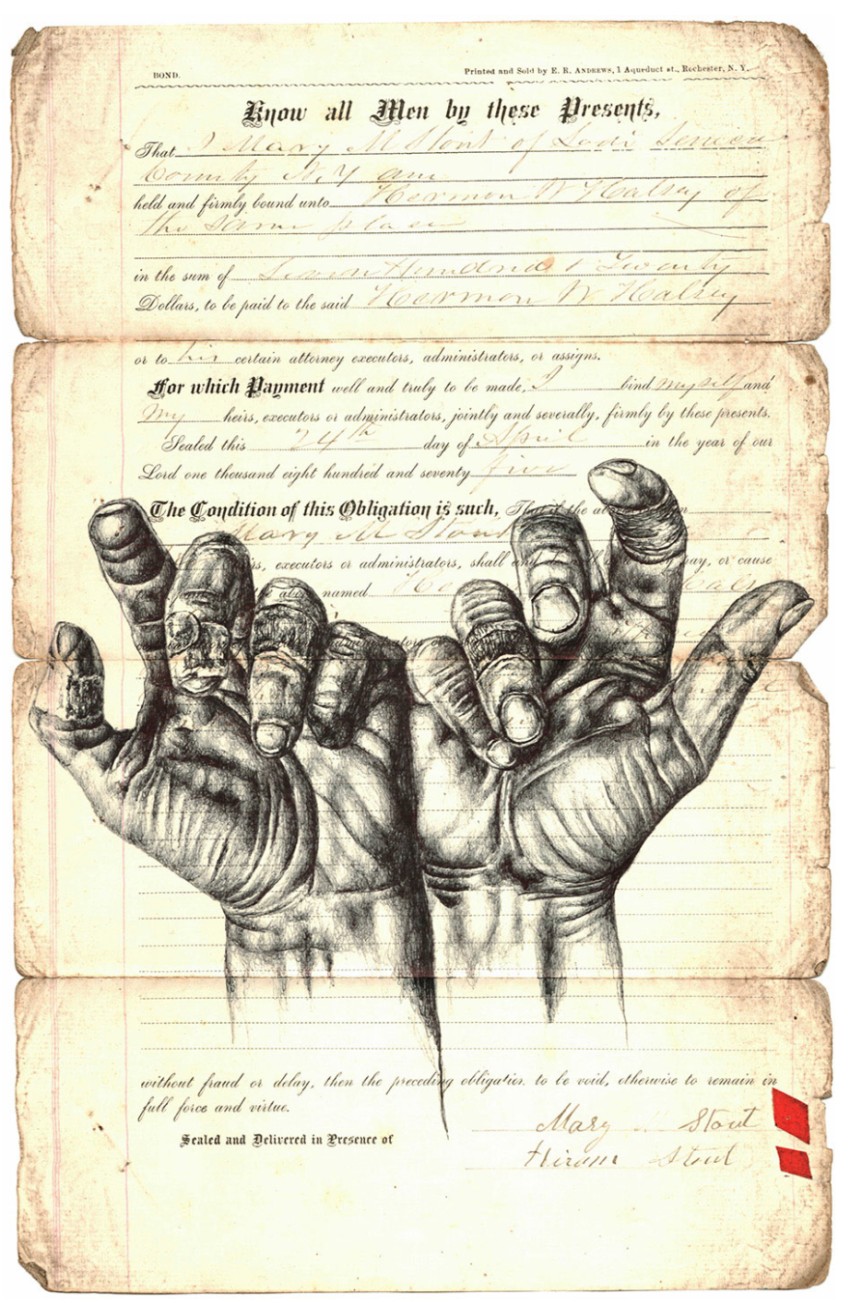 BOND.
Printed and Sold by E. R. ANDREWS, 1 Aqueduct st., Rochester, N. Y.
Know all Men by these Presents,
That I Mary M Stout of Lodi Seneca
County N.Y am
held and firmly bound unto Hermon W Halsey of
the same place
in the sum of Seven Hundred & Twenty
Dollars, to be paid to the said Hermon W Halsey
or to his certain attorney executors, administrators, or assigns.
For which Payment well and truly to be made, I bind myself and
my heirs, executors or administrators, jointly and severally, firmly by these presents.
Sealed this 24th day of April in the year of our
Lord one thousand eight hundred and seventy five
The Condition of this Obligation is such, That if the
Mary M Stout
executors or administrators, shall pay, or cause
above named
without fraud or delay, then the preceding obligation to be void, otherwise to remain in
full force and virtue.
Sealed and Delivered in Presence of
Mary Stout
Hiram Stout